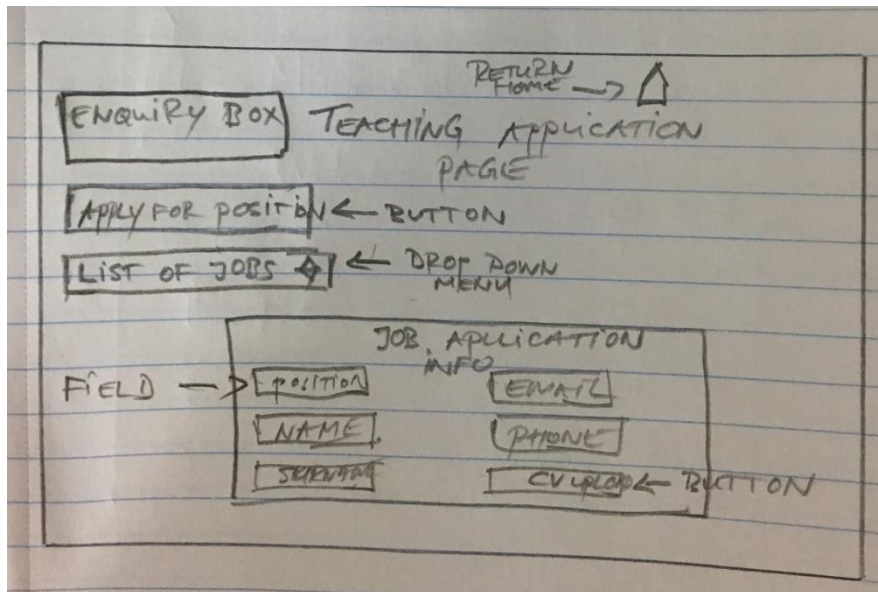 RETURN
HOME
ENQUIRY BOX
TEACHING APPLICATION
PAGE
APPLY FOR POSITION
BUTTON
LIST OF JOBS
DROP DOWN
MENU
JOB APLLICATION
INFO
FIELD
POSITION
EMAIL
NAME
PHONE
SURNAME
CV UPLOAD
BUTTON